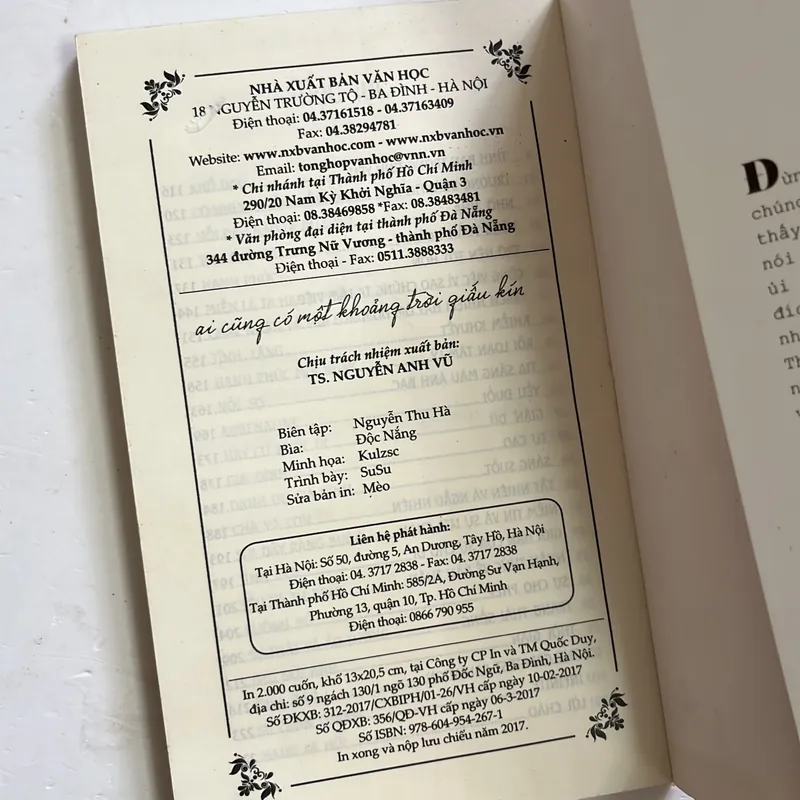 NHÀ XUẤT BẢN VĂN HỌC
18 NGUYỄN TRƯỜNG TỘ - BA ĐÌNH - HÀ NỘI
Điện thoại: 04.37161518 - 04.37163409
Fax: 04.38294781
Website: www.nxbvanhoc.com - www.nxbvanhoc.vn
Email: tonghopvanhoc@vnn.vn
* Chi nhánh tại Thành phố Hồ Chí Minh
290/20 Nam Kỳ Khởi Nghĩa - Quận 3
Điện thoại: 08.38469858 *Fax: 08.38483481
* Văn phòng đại diện tại thành phố Đà Nẵng
344 đường Trưng Nữ Vương - thành phố Đà Nẵng
Điện thoại - Fax: 0511.3888333
ai cũng có một khoảng trời giấu kín
Chịu trách nhiệm xuất bản:
TS. NGUYỄN ANH VŨ
Biên tập: Nguyễn Thu Hà
Bìa: Độc Nắng
Minh họa: Kulzsc
Trình bày: SuSu
Sửa bản in: Mèo
Liên hệ phát hành:
Tại Hà Nội: Số 50, đường 5, An Dương, Tây Hồ, Hà Nội
Điện thoại: 04. 3717 2838 - Fax: 04. 3717 2838
Tại Thành phố Hồ Chí Minh: 585/2A, Đường Sư Vạn Hạnh,
Phường 13, quận 10, Tp. Hồ Chí Minh
Điện thoại: 0866 790 955
In 2.000 cuốn, khổ 13x20,5 cm, tại Công ty CP In và TM Quốc Duy,
địa chỉ: số 9 ngách 130/1 ngõ 130 phố Đốc Ngữ, Ba Đình, Hà Nội.
Số ĐKXB: 312-2017/CXBIPH/01-26/VH cấp ngày 10-02-2017
Số QĐXB: 356/QĐ-VH cấp ngày 06-3-2017
Số ISBN: 978-604-954-267-1
In xong và nộp lưu chiểu năm 2017.
chúng
thấy
nói
ủi